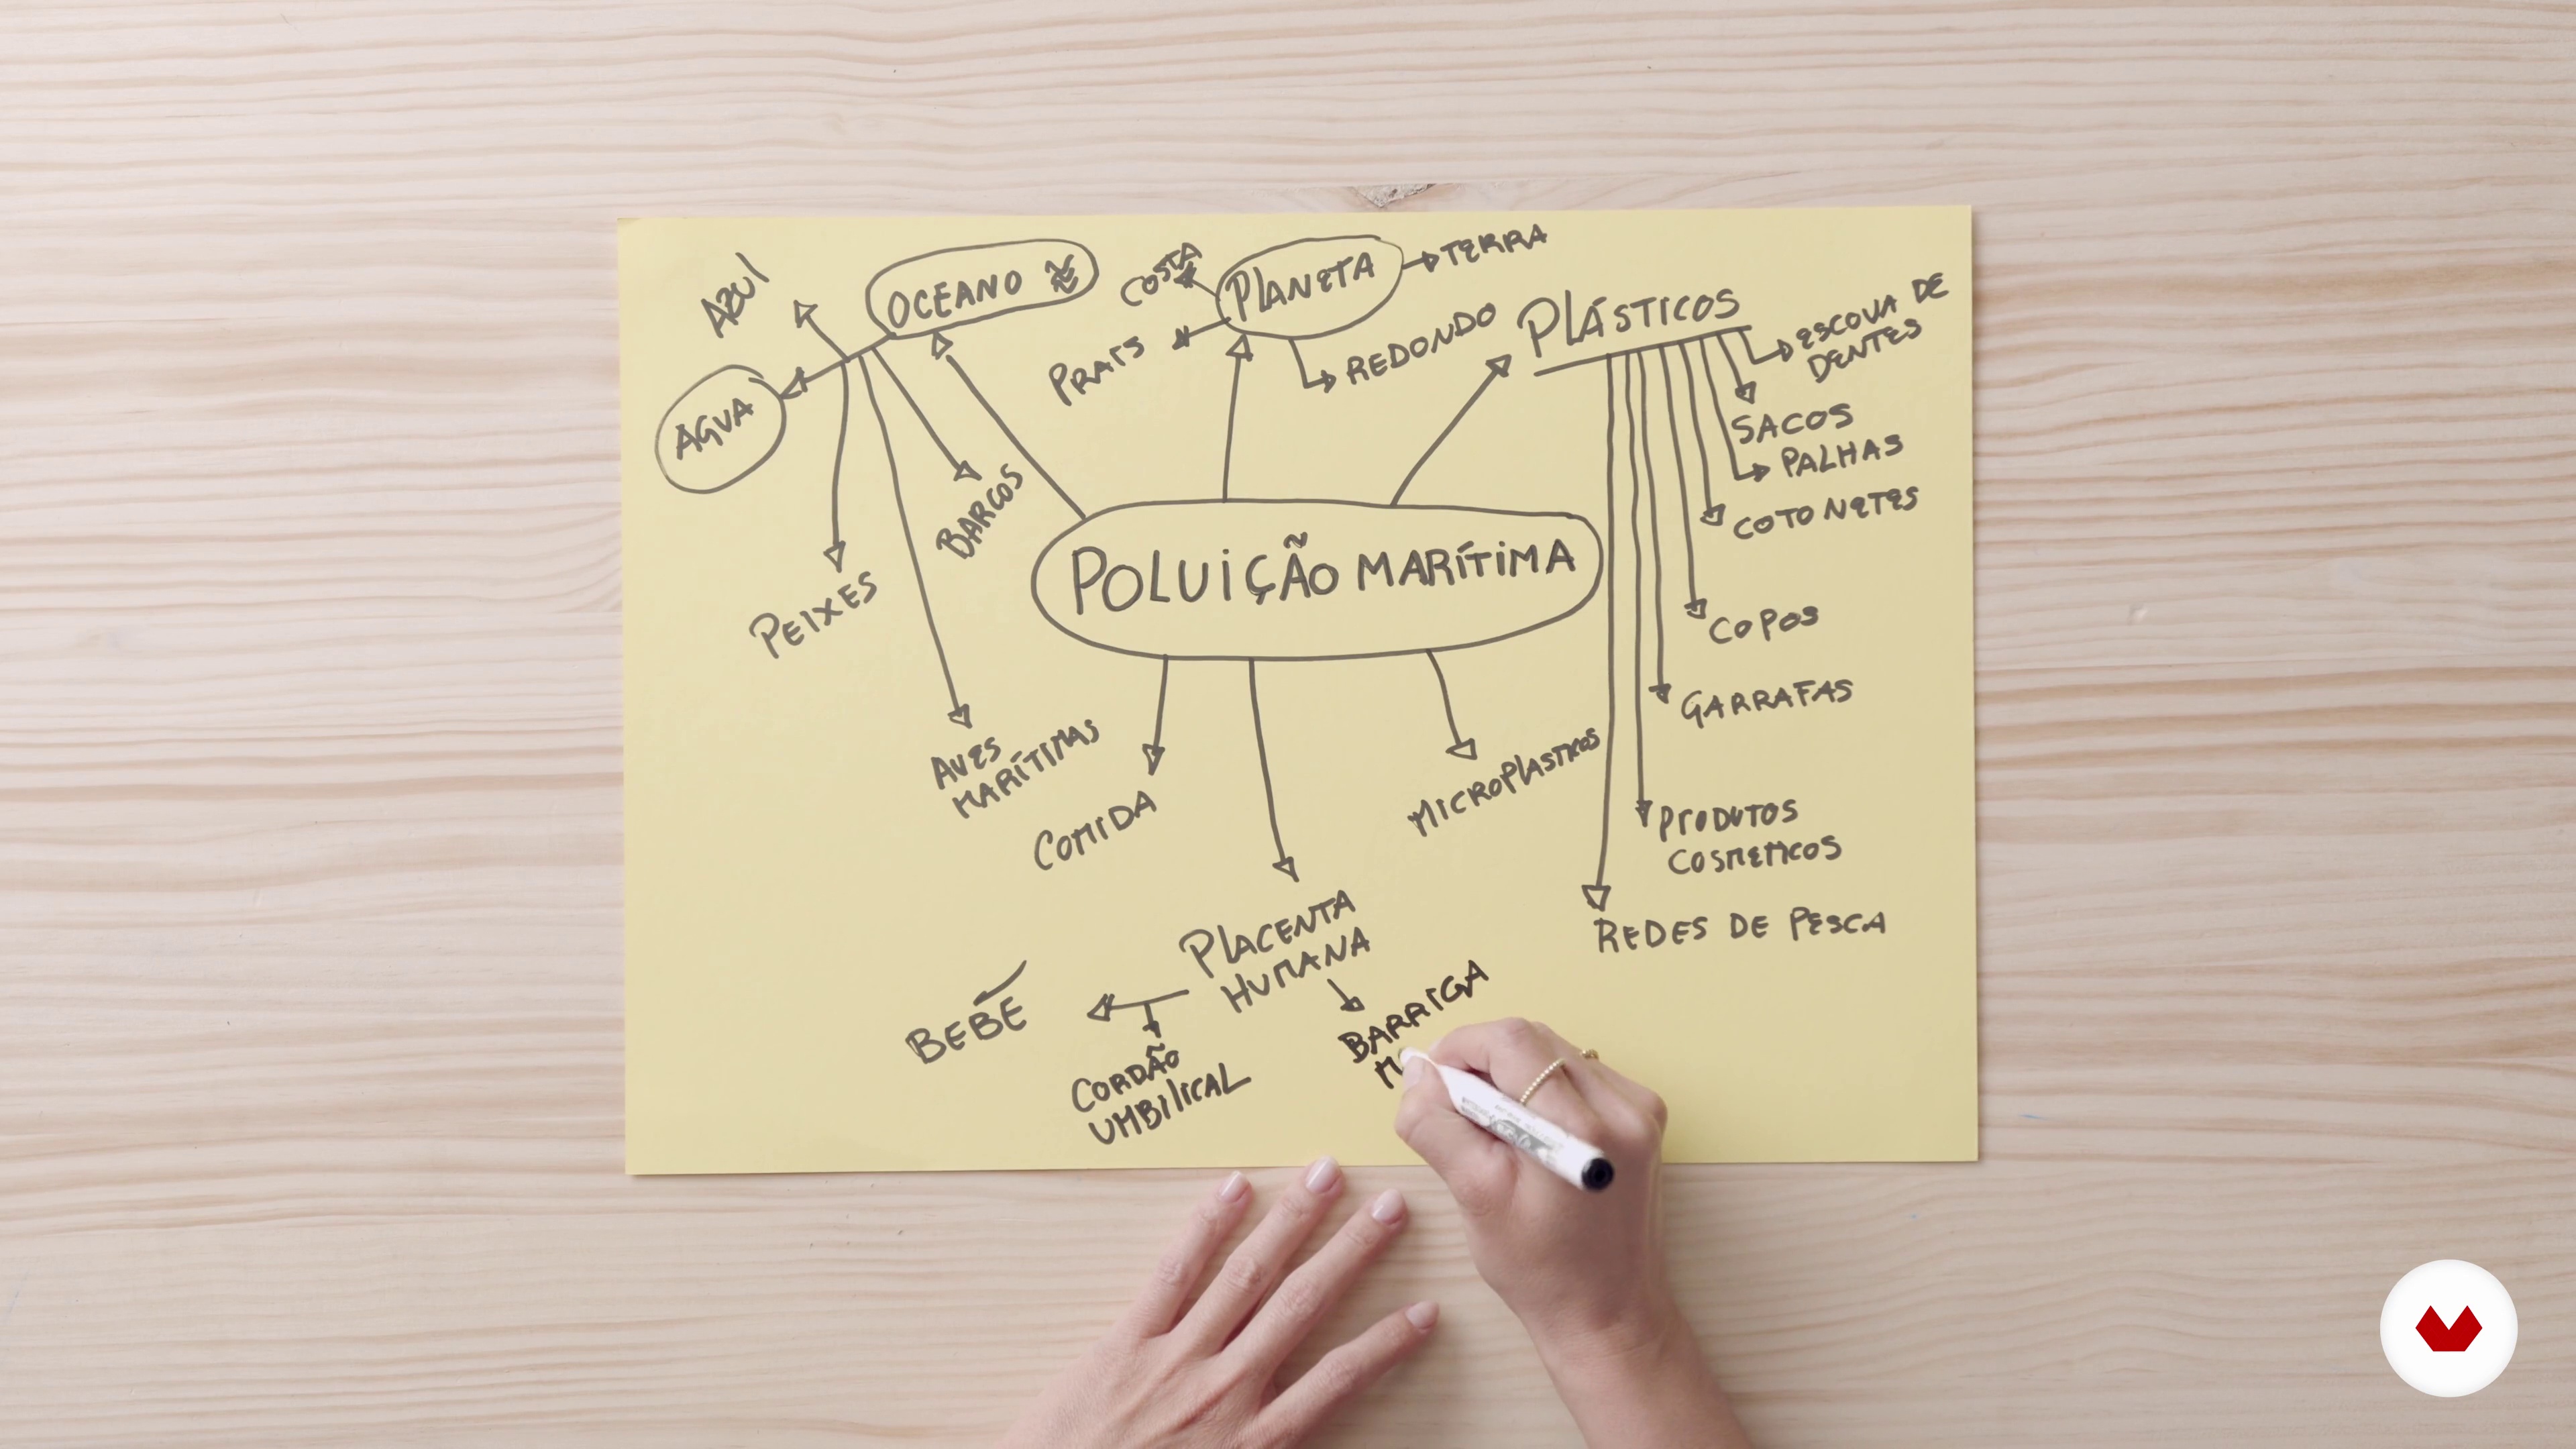 AZUL
OCEANO
ÁGUA
PEIXES
AVES
MARÍTIMAS
BARCOS
COSTA
PLANETA
TERRA
PRAIS
REDONDO
PLÁSTICOS
ESCOVA DE
DENTES
SACOS
PALHAS
COTONETES
COPOS
GARRAFAS
PRODUTOS
COSMETICOS
REDES DE PESCA
POLUIÇÃO MARÍTIMA
COMIDA
MICROPLASTICOS
PLACENTA
HUMANA
BEBÉ
CORDÃO
UMBILICAL
BARRIGA